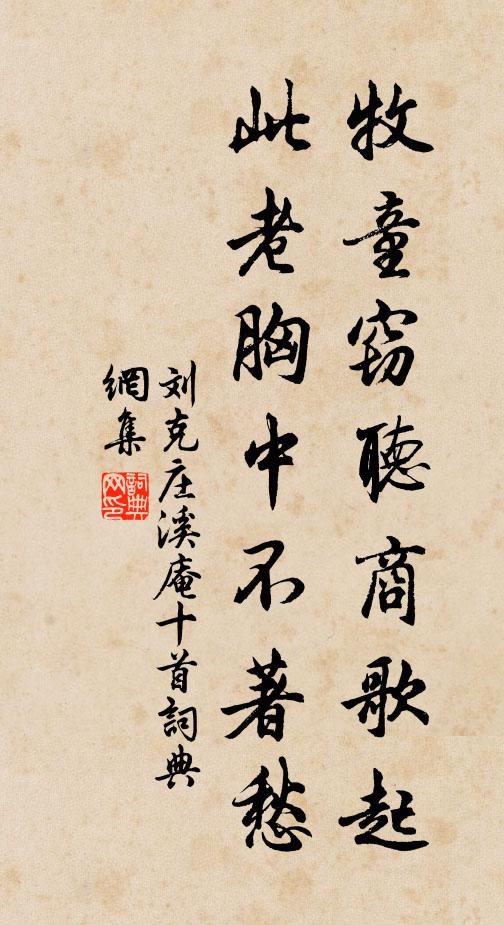 牧童窃聽商歌起
此老胸中不著愁
刘克庄溪庵十首詞典
網集
詞典网印